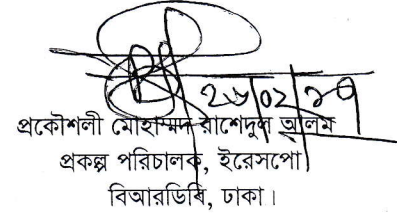 প্রকৌশলী মোহাম্মদ রাশেদুল আলম
প্রকল্প পরিচালক, ইরেসপো
বিআরডিবি, ঢাকা।